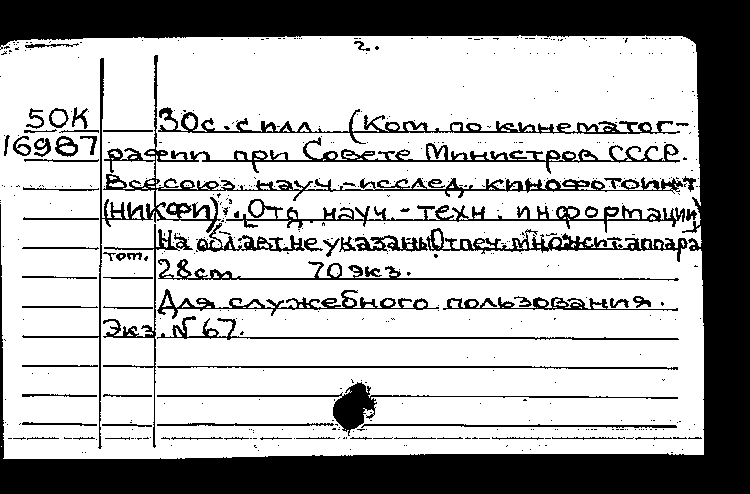 2.
50К 30с. с илл. (Ком. по кинематог-
16987 рафии при Совете Министров СССР.
Всесоюз. науч.-исслед. кинофотоинт
(НИКФИ). Отд. науч.-техн. информации)
На обл. авт. не указаны. Отпеч. множит. аппара
том.
28см. 70 экз.
Для служебного пользования.
Экз. № 67.